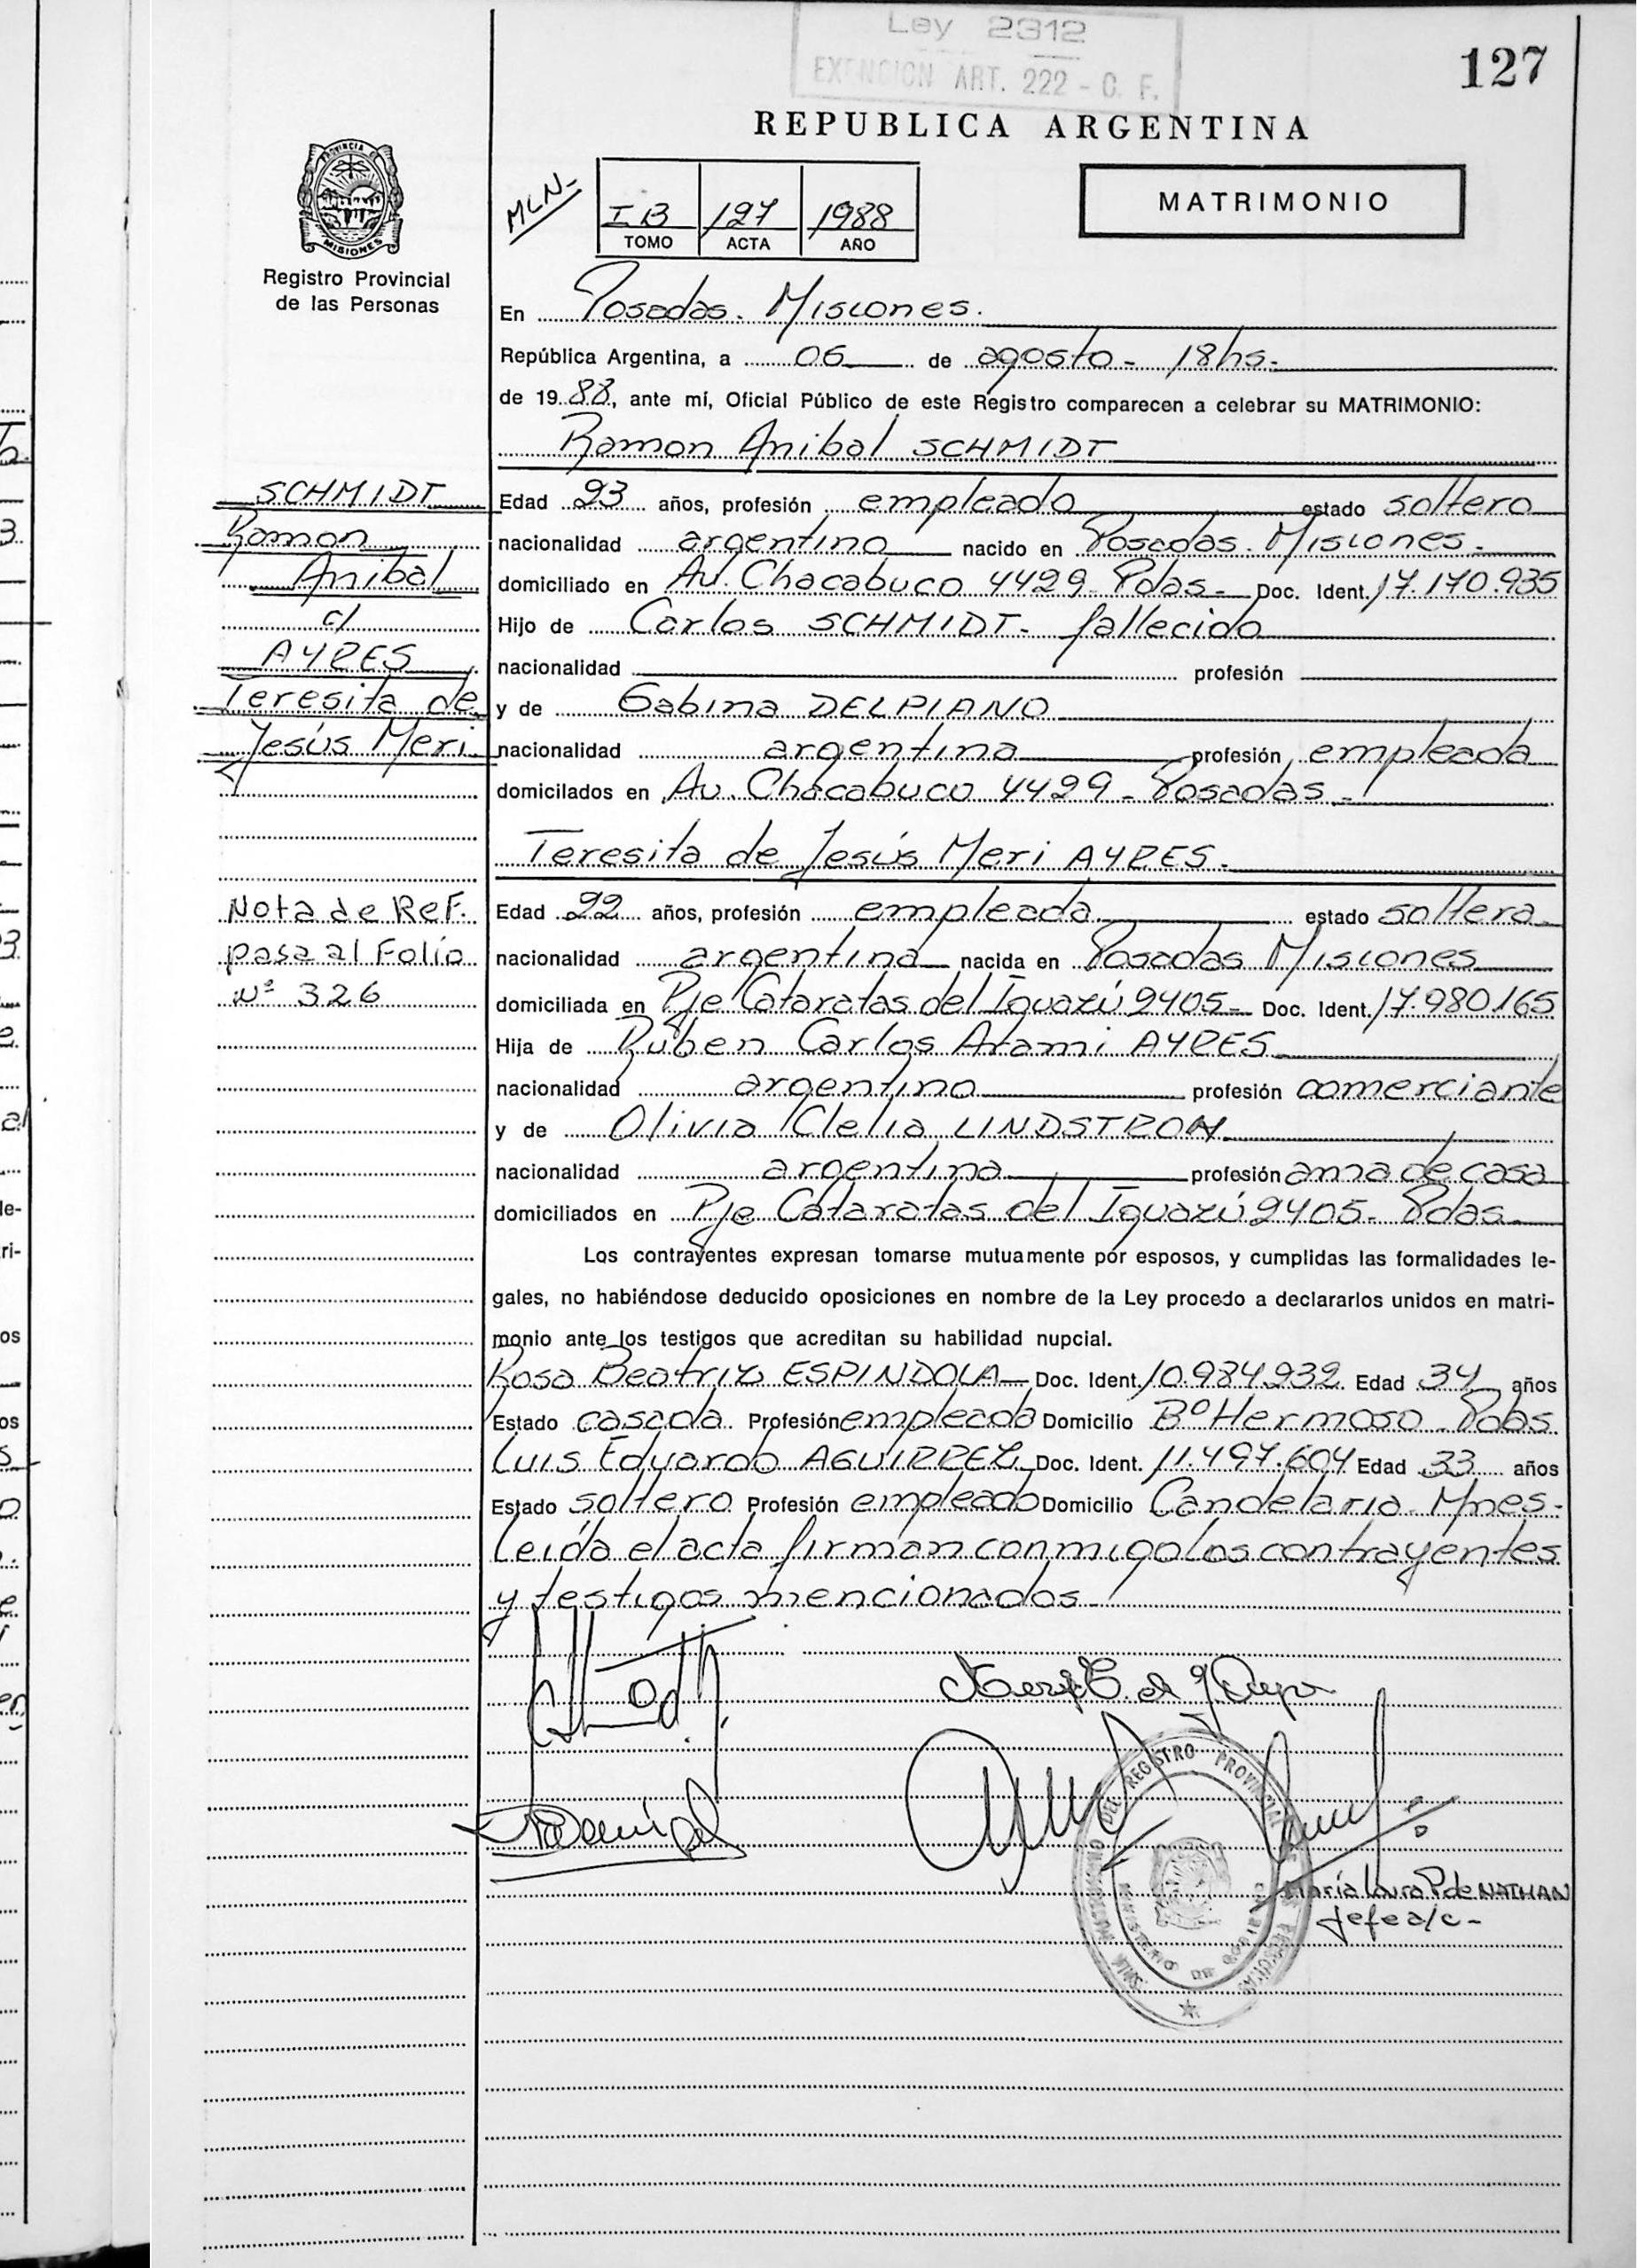 Ley 2312
EXENCION ART. 222 - C. F.
127
REPUBLICA ARGENTINA
PROVINCIA DE
MISIONES
Registro Provincial
de las Personas
MLN-
I B 127 1988
TOMO ACTA AÑO
MATRIMONIO
En Posadas. Misiones.
República Argentina, a 06 de agosto - 18hs.
de 1988, ante mí, Oficial Público de este Registro comparecen a celebrar su MATRIMONIO:
Ramon Anibal SCHMIDT
SCHMIDT
Ramon
Anibal
c/
AYRES
Teresita de
Jesús Meri
Edad 23 años, profesión empleado estado soltero
nacionalidad argentino nacido en Posadas. Misiones.
domiciliado en Av. Chacabuco 4429 - Pdas - Doc. Ident. 17.170.935
Hijo de Carlos SCHMIDT - fallecido
nacionalidad profesión
y de Gabina DELPIANO
nacionalidad argentina profesión empleada
domicilados en Av. Chacabuco 4429 - Posadas -
Teresita de Jesús Meri AYRES.
Nota de Ref.
pasa al Folio
Nº 326
Edad 22 años, profesión empleada estado soltera
nacionalidad argentina nacida en Posadas Misiones
domiciliada en Pje Cataratas del Iguazú 2405 - Doc. Ident. 17.980.165
Hija de Rúben Carlos Arami AYRES
nacionalidad argentino profesión comerciante
y de Olivia Clelia LINDSTROM
nacionalidad argentina profesión ama de casa
domiciliados en Pje Cataratas del Iguazú 2405 - Pdas
Los contrayentes expresan tomarse mutuamente por esposos, y cumplidas las formalidades le-
gales, no habiéndose deducido oposiciones en nombre de la Ley procedo a declararlos unidos en matri-
monio ante los testigos que acreditan su habilidad nupcial.
Rosa Beatriz ESPINDOLA - Doc. Ident. 10.984.932 Edad 34 años
Estado casada Profesión empleada Domicilio Bº Hermoso - Pdas.
Luis Eduardo AGUIRREZ - Doc. Ident. 11.497.604 Edad 33 años
Estado soltero Profesión empleado Domicilio Candelaria - Mnes.
Leída el acta firman conmigo los contrayentes
y testigos mencionados
DEL REGISTRO PROVINCIAL DE LAS PERSONAS
MINISTERIO DE GOBIERNO
María Laura P. de NATHAN
Jefe a/c -